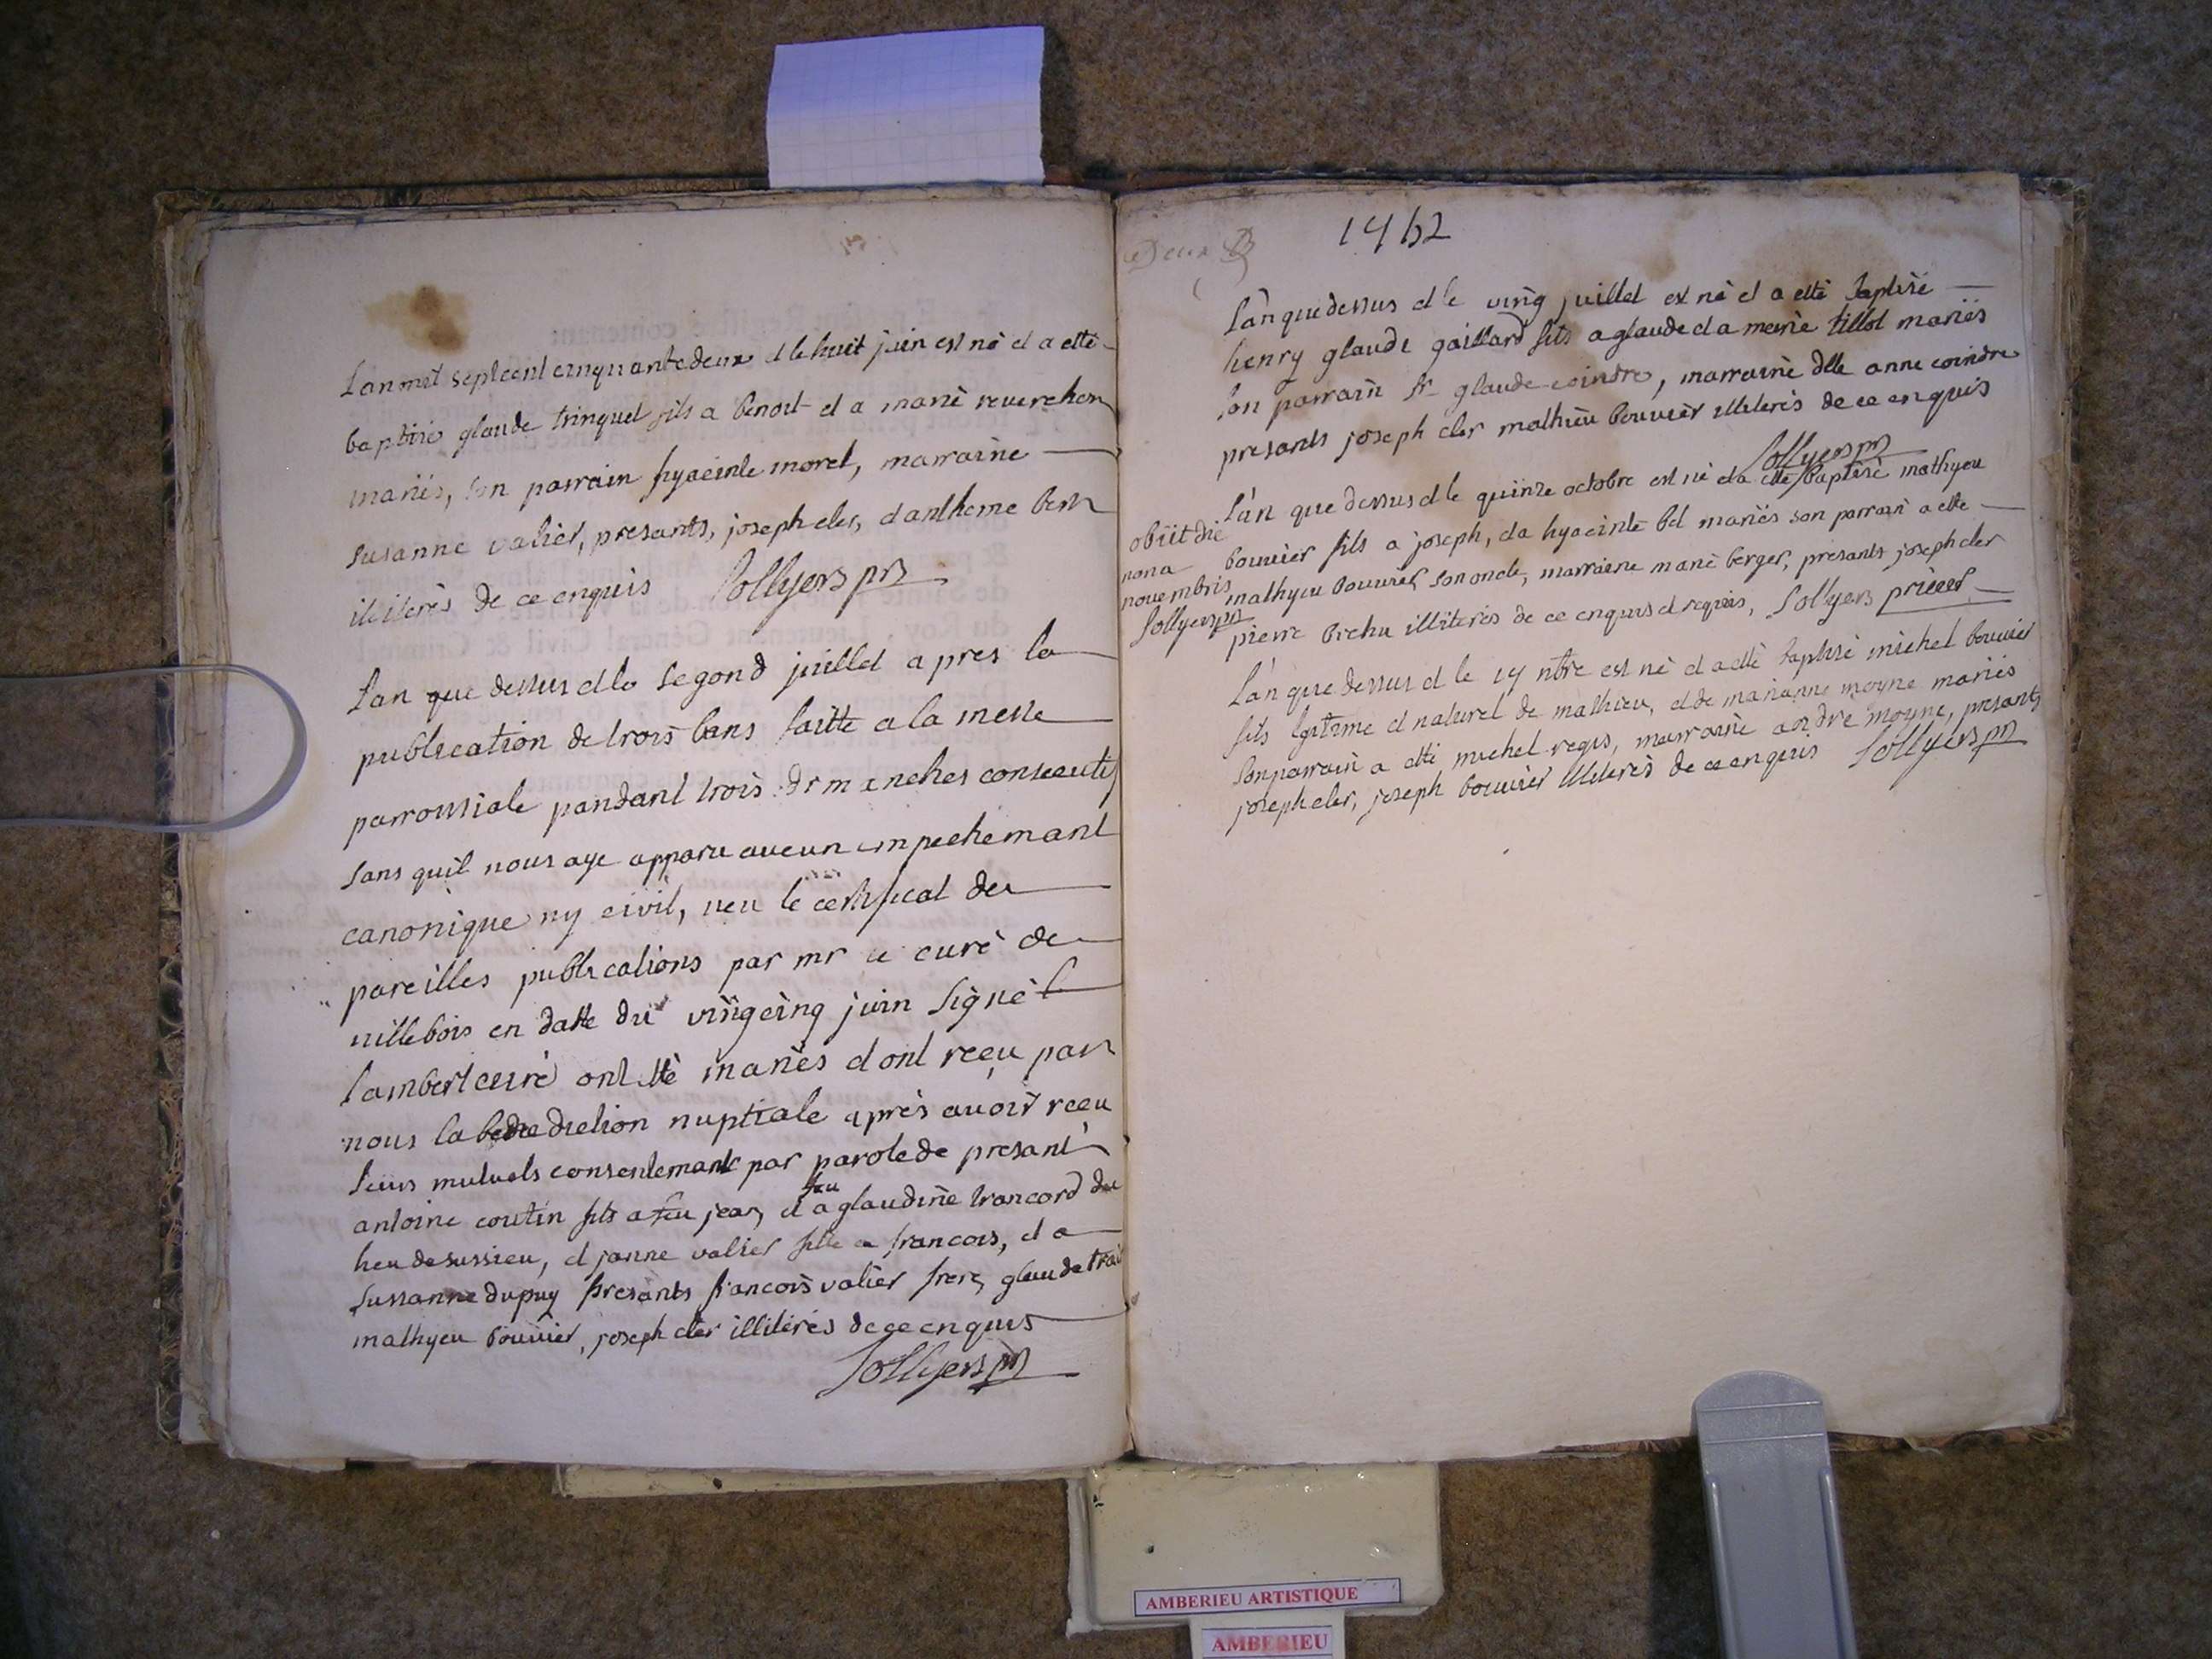 Lan mil septcent cinquante deux et le huit juin est né et a etté
baptisé glaude trinquet fils a benoit et a marie reverchon
mariés, son parrain hyacinte morel, marraine
susanne valier, presants, joseph cler, et antheme
illiterés de ce enquis Sollyers pr
Lan que dessus et le segond juillet apres la
publication de trois bans faitte a la messe
parroissiale pandant trois dimanches consecutif
sans quil nous aye apparu aucun empechemant
canonique ny civil, veu le certificat de
pareilles publications par mr le curé de
villebois en datte du vingcinq juin signé
Lambert curé ont été mariés et ont reçu par
nous la benediction nuptiale après avoir reçu
leurs mutuels consentemants par parole de presant
antoine coutin fils a feu jean, et a feu glaudine trancard du
lieu de sussieu, et janne valier fille a francois, et a
sussanne dupuy presants francois valier frere, glaude
mathyeu bouvier, joseph cler illiterés de ce enquis
Sollyers pr
Deux
1752
Lan que dessus et le ving juillet est né et a etté baptisé
henry glaude gaillard fils a glaude et a marie tillot mariés
son parrain sr glaude coindre, marraine dlle anne coindre
presants joseph cler mathieu bouvier illiterés de ce enquis
Sollyers pr
Lan que dessus et le quinze octobre est né et a etté baptisé mathyeu
bouvier fils a joseph, et a hyacinte bel mariés son parrain a etté
mathyeu bouvier son oncle, marraine marie berger, presants joseph cler
pierre brehu illiterés de ce enquis et requis, Sollyers prieur
obiit die
nona
novembris
Sollyers pr
Lan que dessus et le 17 nbre est né et a etté baptisé michel bouvier
fils legitime et naturel de mathieu, et de marianne moyne mariés
son parrain a etté michel regis, marraine andré moyne, presants
joseph cler, joseph bouvier illiterés de ce enquis Sollyers pr
AMBERIEU ARTISTIQUE
AMBERIEU